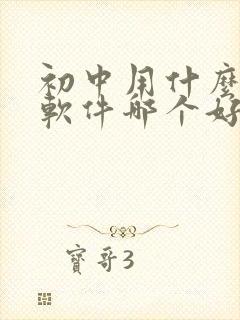 初中用什麼
軟件哪个好
寶哥3